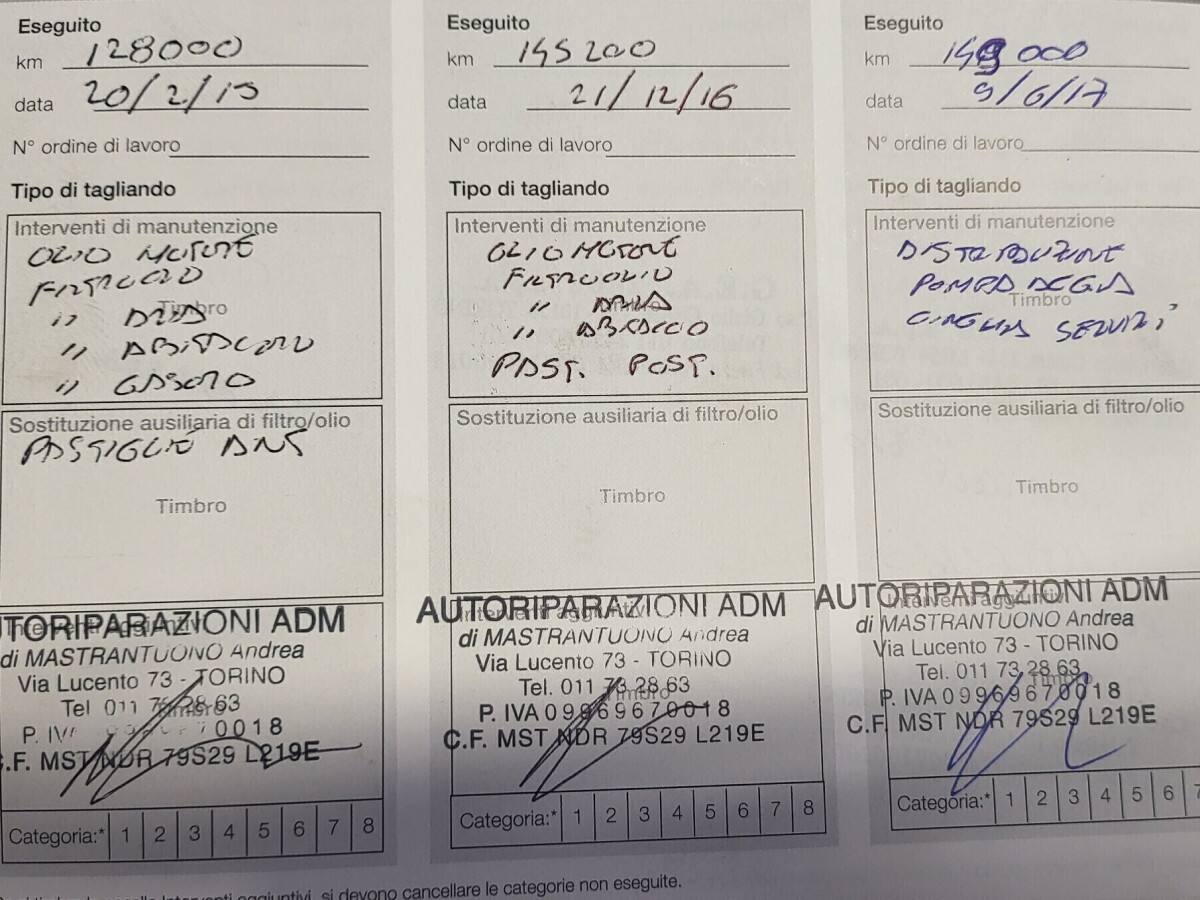 Eseguito
km 128000
data 20/2/15
N° ordine di lavoro
Tipo di tagliando
Interventi di manutenzione
OLIO MOTORE
FILTRO OLIO
Timbro
" ARIA
" ABITACOLO
" GASOLIO
Sostituzione ausiliaria di filtro/olio
PASTIGLIE ANT
Timbro
Interventi aggiuntivi
AUTORIPARAZIONI ADM
di MASTRANTUONO Andrea
Via Lucento 73 - TORINO
Tel 011 73.28.63
Timbro
P. IV 70018
C.F. MST NDR 79S29 L219E
Categoria:* 1 2 3 4 5 6 7 8
Eseguito
km 145200
data 21/12/16
N° ordine di lavoro
Tipo di tagliando
Interventi di manutenzione
OLIO MOTORE
FILTRO OLIO
" ARIA
Timbro
" ABITACOLO
PAST. POST.
Sostituzione ausiliaria di filtro/olio
Timbro
Interventi aggiuntivi
AUTORIPARAZIONI ADM
di MASTRANTUONO Andrea
Via Lucento 73 - TORINO
Tel. 011 73.28.63
Timbro
P. IVA 09969670018
C.F. MST NDR 79S29 L219E
Categoria:* 1 2 3 4 5 6 7 8
Eseguito
km 149000
data 9/6/17
N° ordine di lavoro
Tipo di tagliando
Interventi di manutenzione
DISTRIBUZIONE
POMPA ACQUA
Timbro
CINGHIA SERVIZI
Sostituzione ausiliaria di filtro/olio
Timbro
Interventi aggiuntivi
AUTORIPARAZIONI ADM
di MASTRANTUONO Andrea
Via Lucento 73 - TORINO
Tel. 011 73.28.63
Timbro
P. IVA 09969670018
C.F. MST NDR 79S29 L219E
Categoria:* 1 2 3 4 5 6 7
aggiuntivi, si devono cancellare le categorie non eseguite.